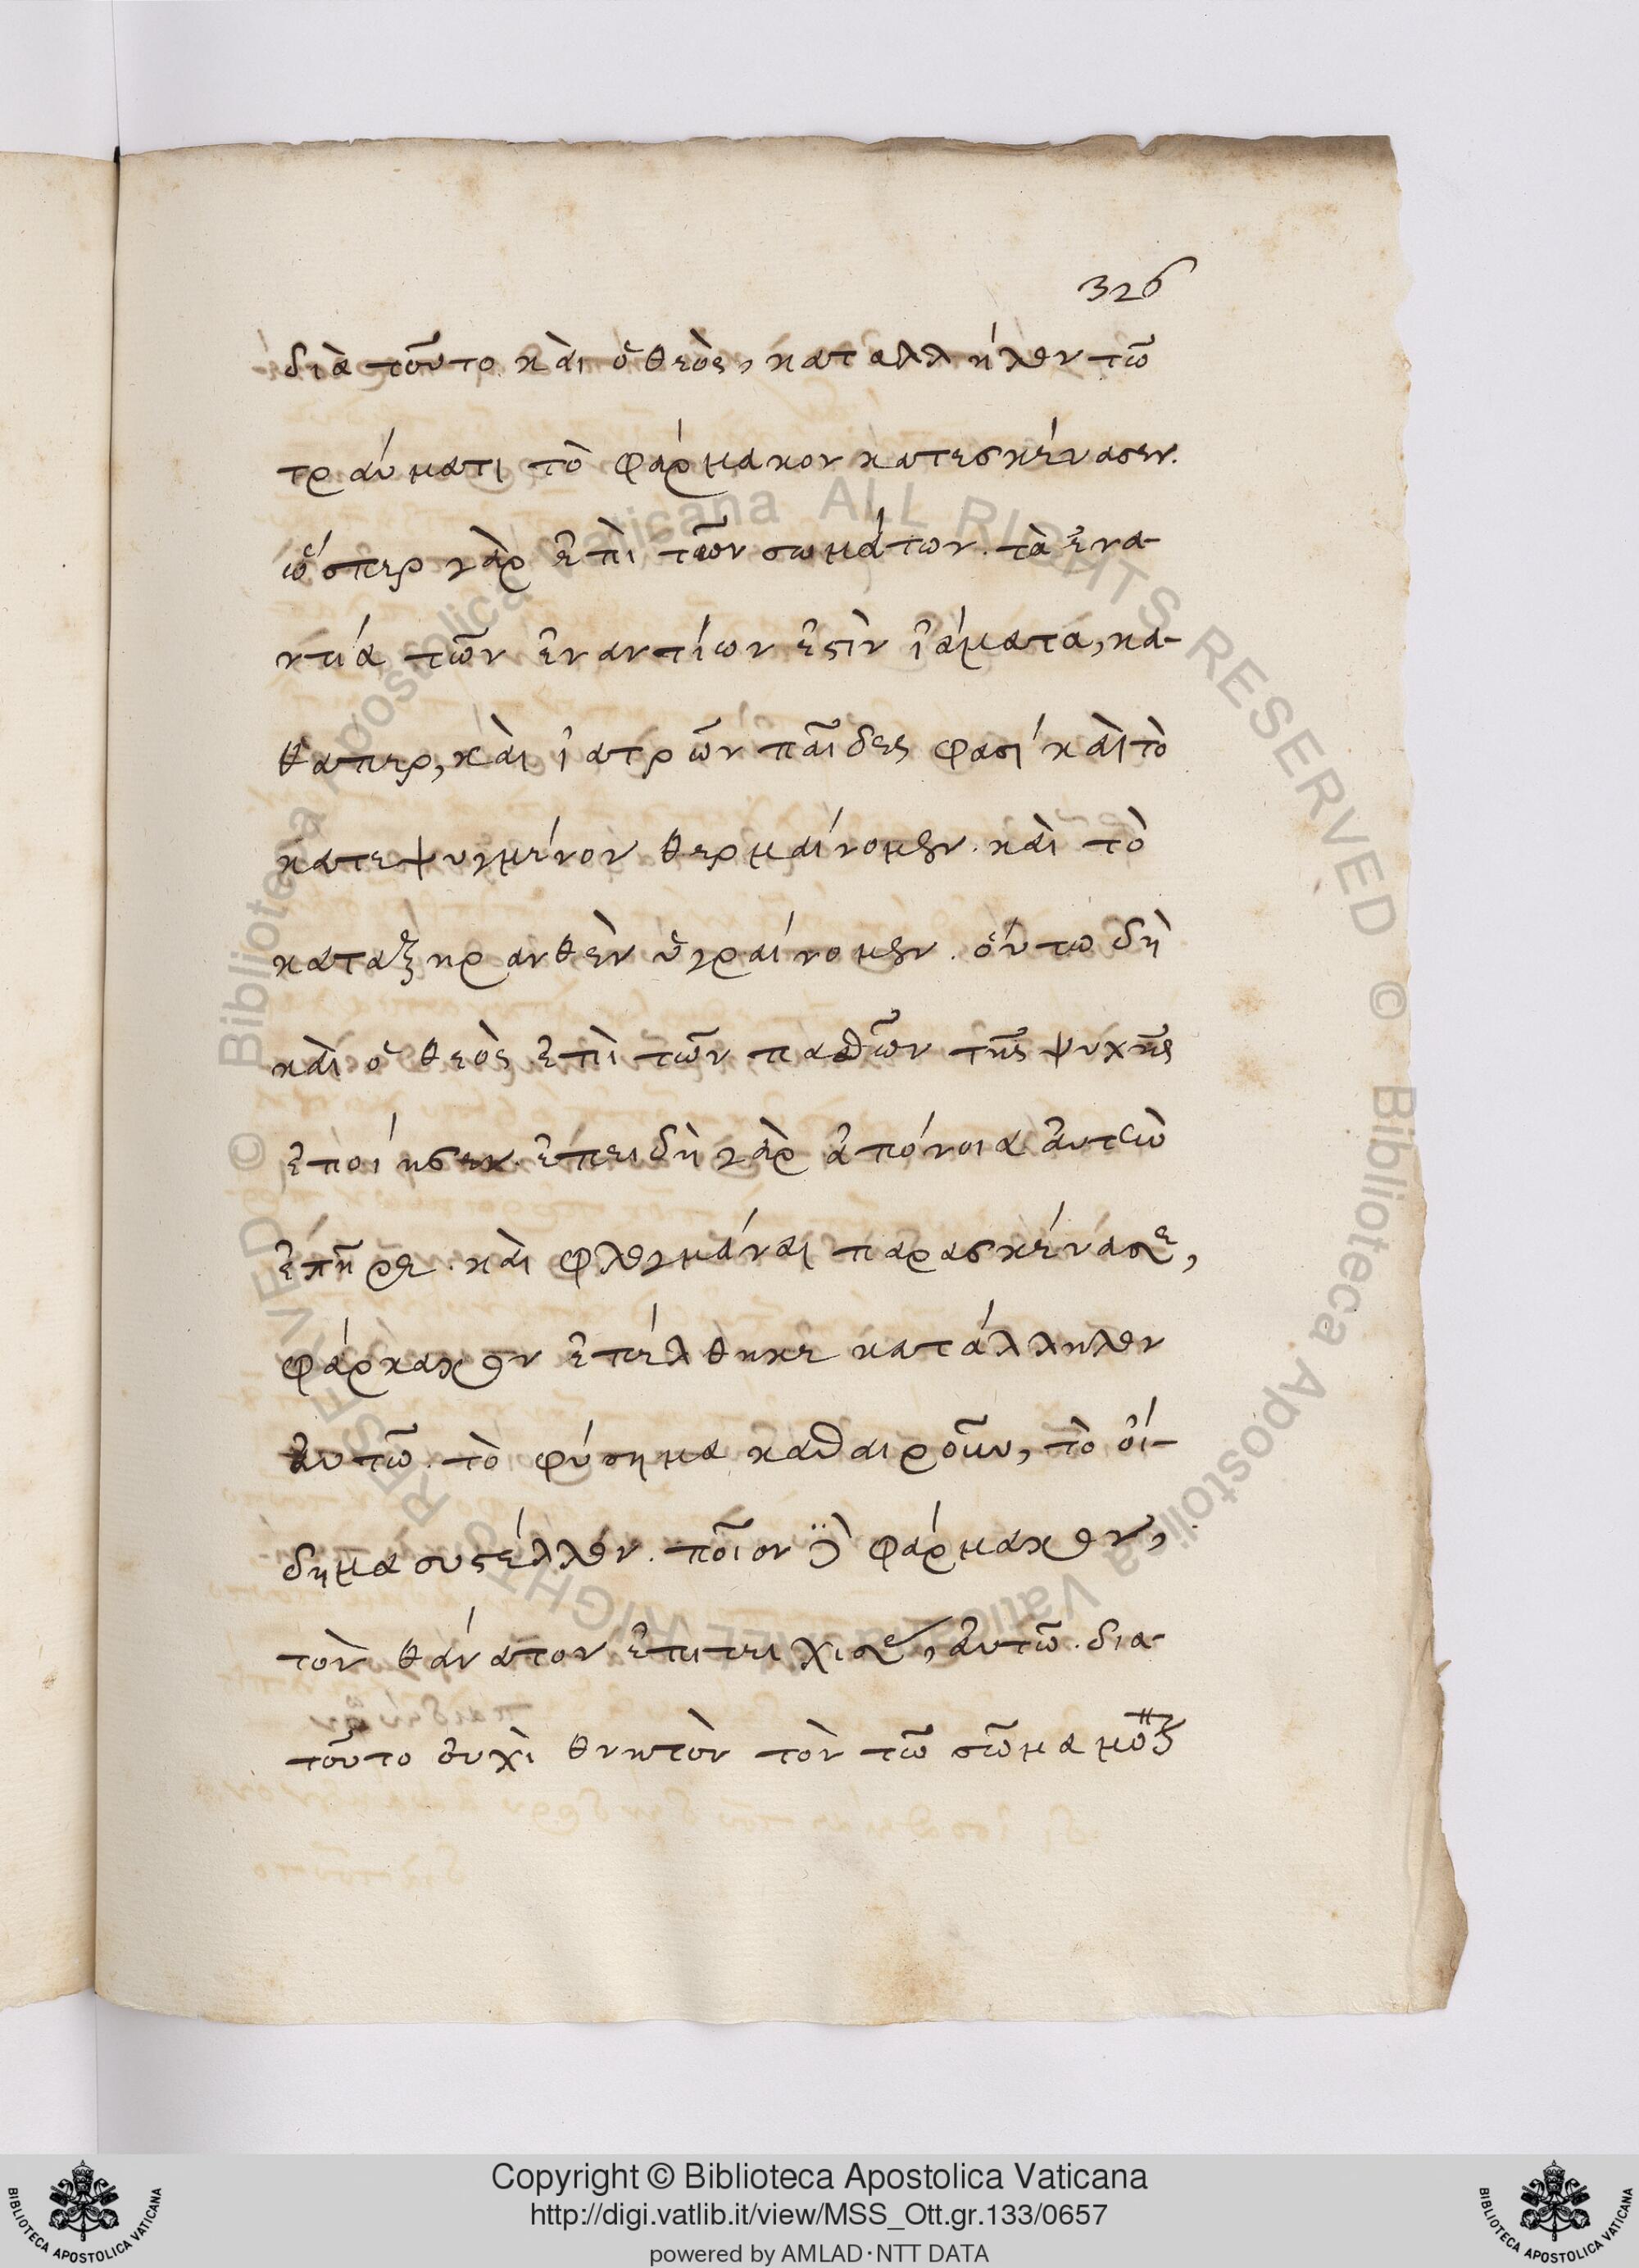 326
διὰ τοῦτο καὶ ὁ θεὸς, καταλλήλον τῶ
τραύματι τὸ φάρμακον κατεσκεύασεν.
ὥσπερ γὰρ ἐπὶ τῶν σωμάτων. τὰ ἐνα-
ντία τῶν ἐναντίων ἐστὶν ἰάματα, κα-
θαπερ, καὶ ἰατρῶν παῖδες φασί καὶ τὸ
κατεψυγμένον θερμαίνομεν. καὶ τὸ
καταξηρανθὲν ὑγραίνομεν. οὕτω δὴ
καὶ ὁ θεὸς ἐπὶ τῶν παθῶν τῆς ψυχῆς
ἐποίησεν. ἐπειδὴ γὰρ ἀπόνοια ἀυτὸν
ἐπῆρε. καὶ φλεγμάναι παρασκεύασε,
φάρμακον ἐπέλθηκε κατάλληλον
ἀυτῶ. τὸ φύσημα καθαιροῦν, τὸ οἴ-
δημα συστέλλον. ποῖον δὲ φάρμακον,
τὸν θάνατον ἐπιτειχισε, ἀυτῶ. δια-
τοῦτο ὀυχὶ θνητὸν τὸν τῶ σῶμα μο
© Biblioteca Apostolica Vaticana ALL RIGHTS RESERVED © Biblioteca Apostolica Vaticana ALL RIGHTS RESERVED
Copyright © Biblioteca Apostolica Vaticana
http://digi.vatlib.it/view/MSS_Ott.gr.133/0657
powered by AMLAD·NTT DATA
BIBLIOTECA APOSTOLICA VATICANA
BIBLIOTECA APOSTOLICA VATICANA